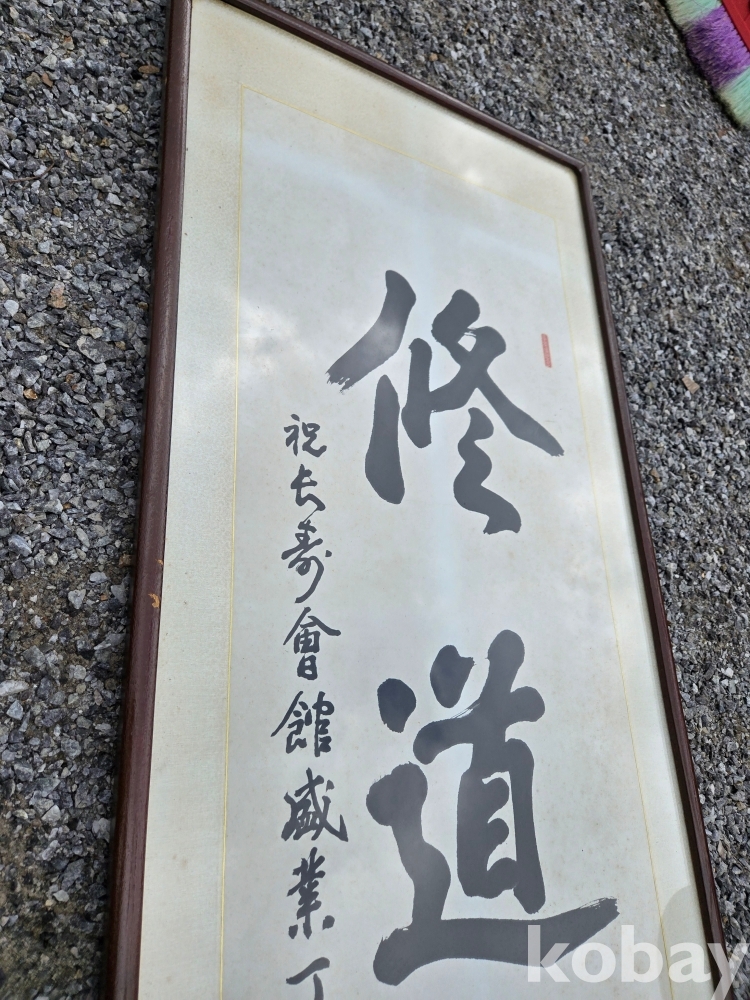 修道
祝長壽會館盛業丁
kobay